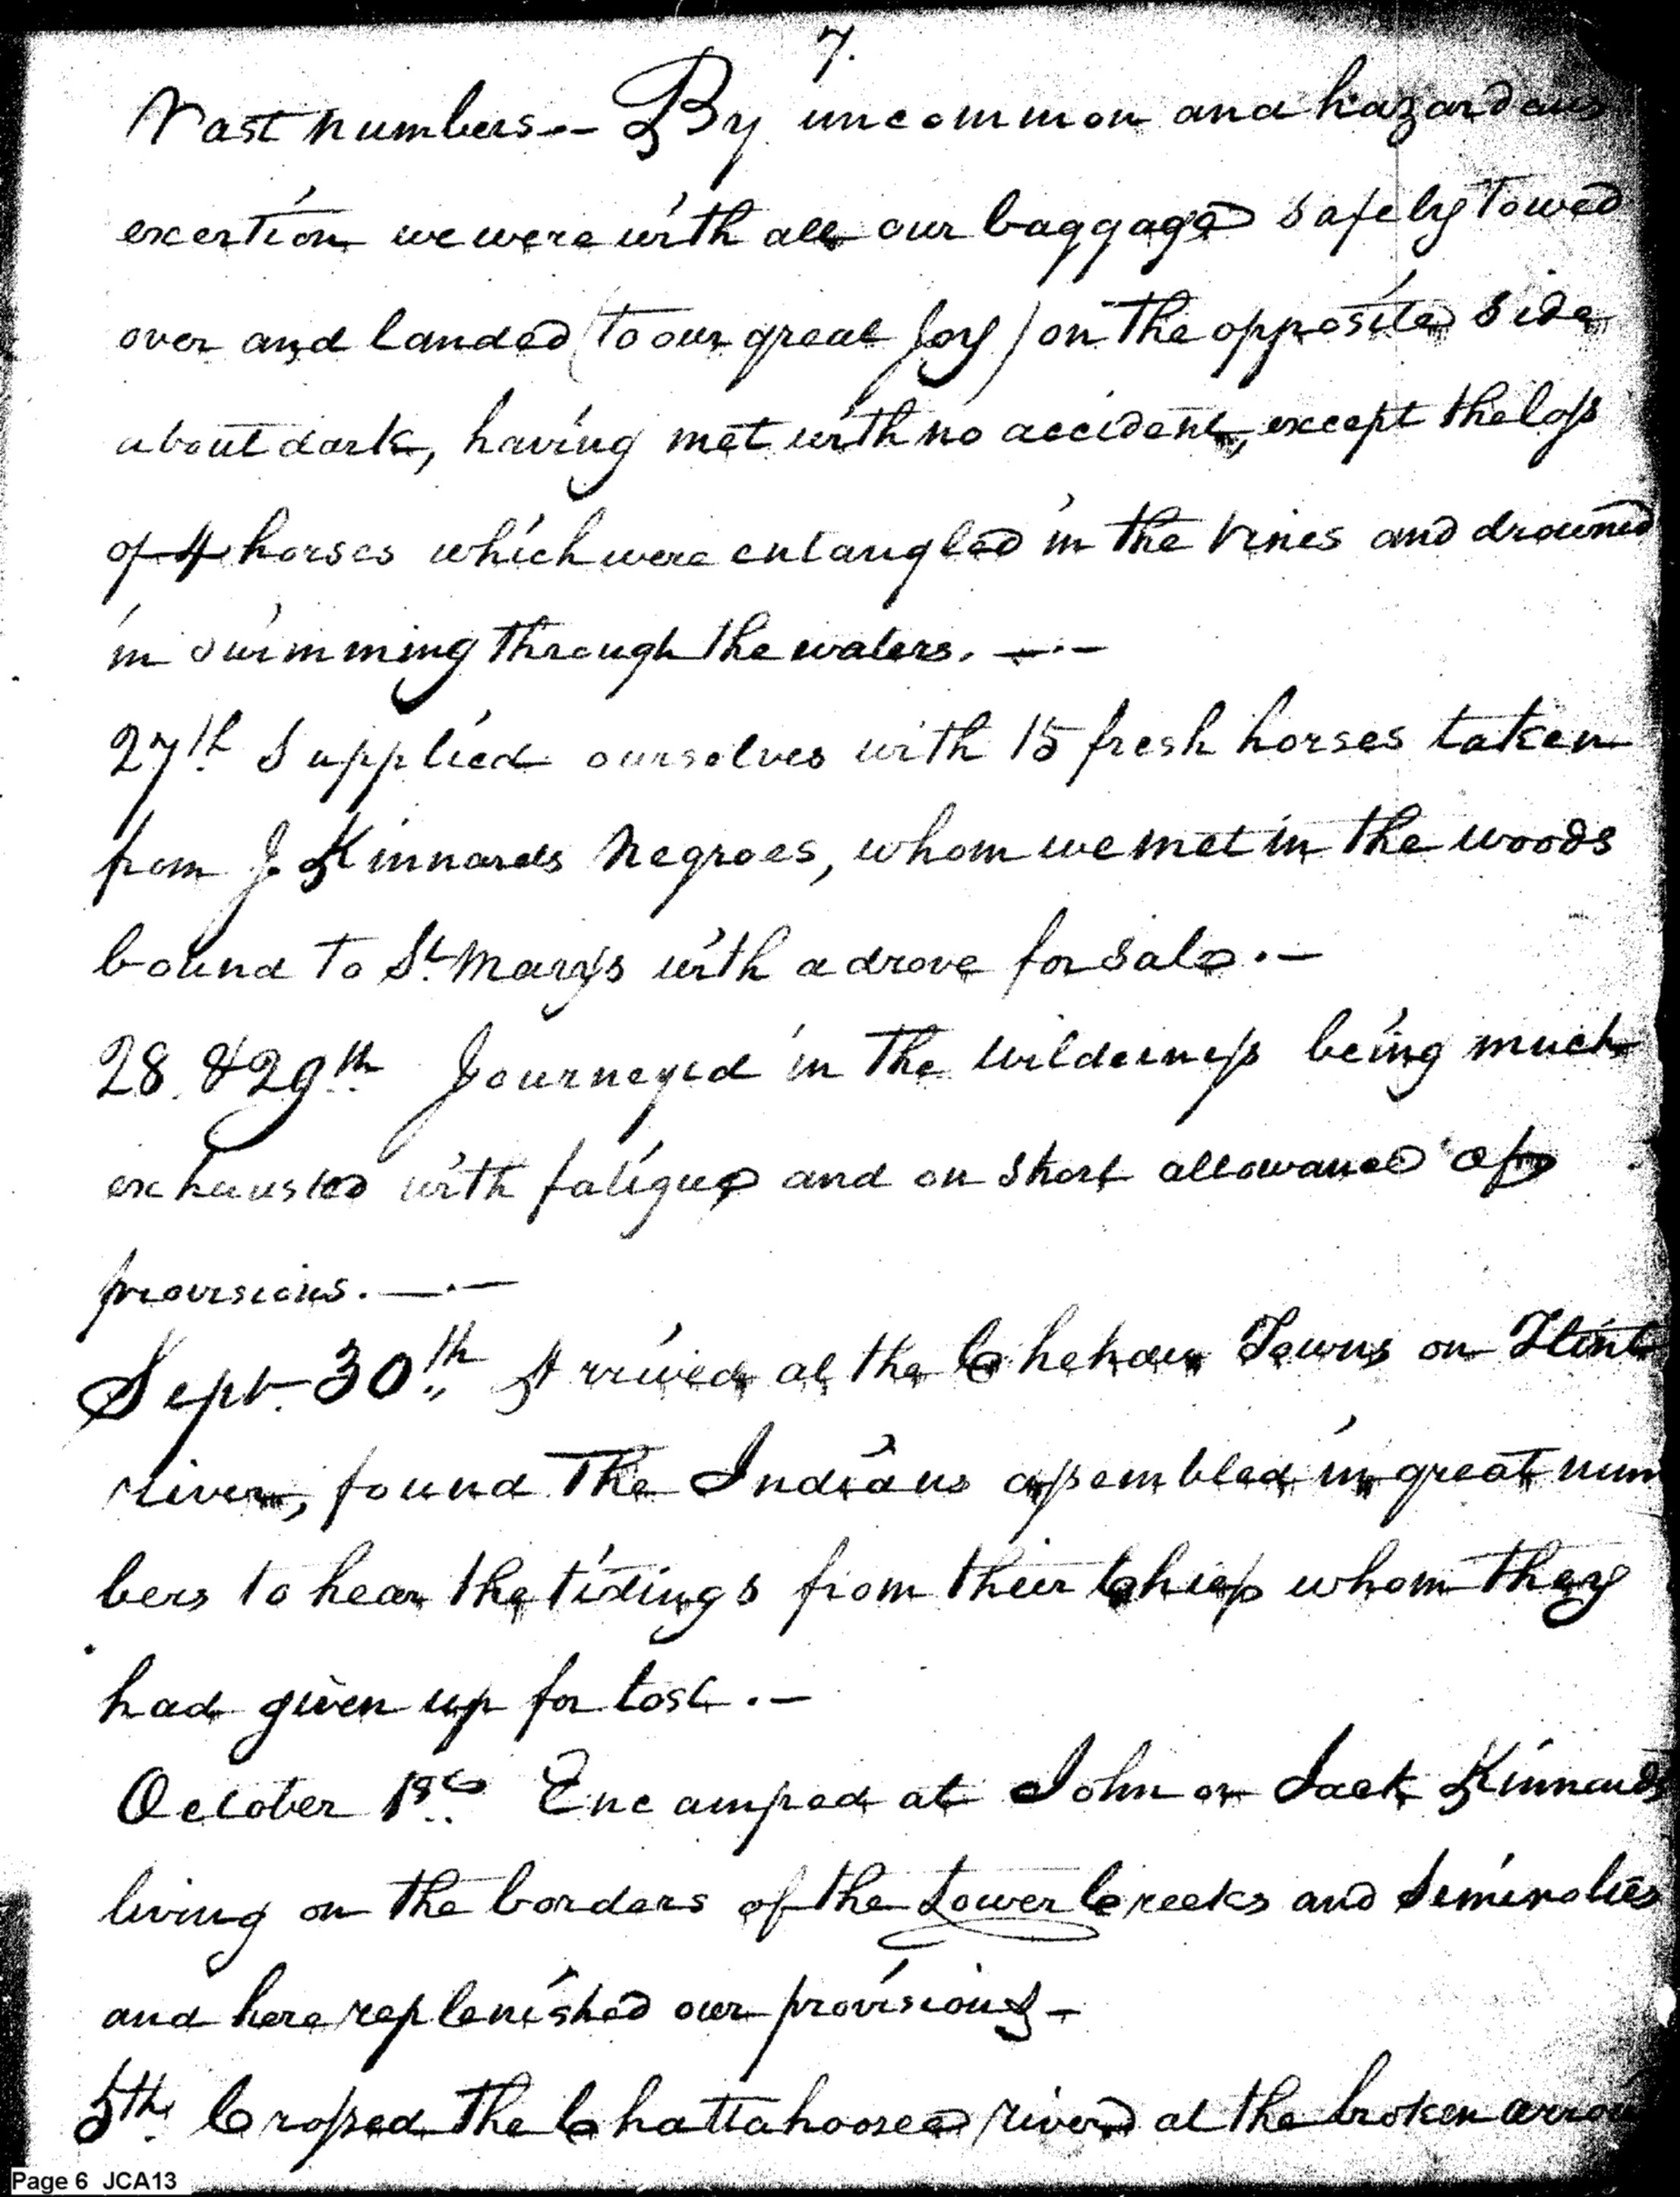 7.
Vast numbers.— By uncommon and hazardous
exertion we were with all our baggage safely towed
over and landed (to our great Joy) on the opposite side
about dark, having met with no accident, except the loss
of 4 horses which were entangled in the vines and drowned
in swimming through the waters. —.—
27th Supplied ourselves with 15 fresh horses taken
from J. Kinnards Negroes, whom we met in the woods
bound to St. Marys with a drove for sale.—
28. & 29th Journeyed in the wilderness being much
exhausted with fatigue and on short allowance of
provisions. —.—
Sept. 30th Arrived at the Chehaw Towns on Flint
river, found the Indians assembled in great num
bers to hear the tidings from their Chiefs whom they
had given up for lost.—
October 1st Encamped at John or Jack Kinnards
living on the borders of the Lower Creeks and Siminolies
and here replenished our provisions—
5th. Crossed the Chattahoosee river at the broken arrow
Page 6 JCA13